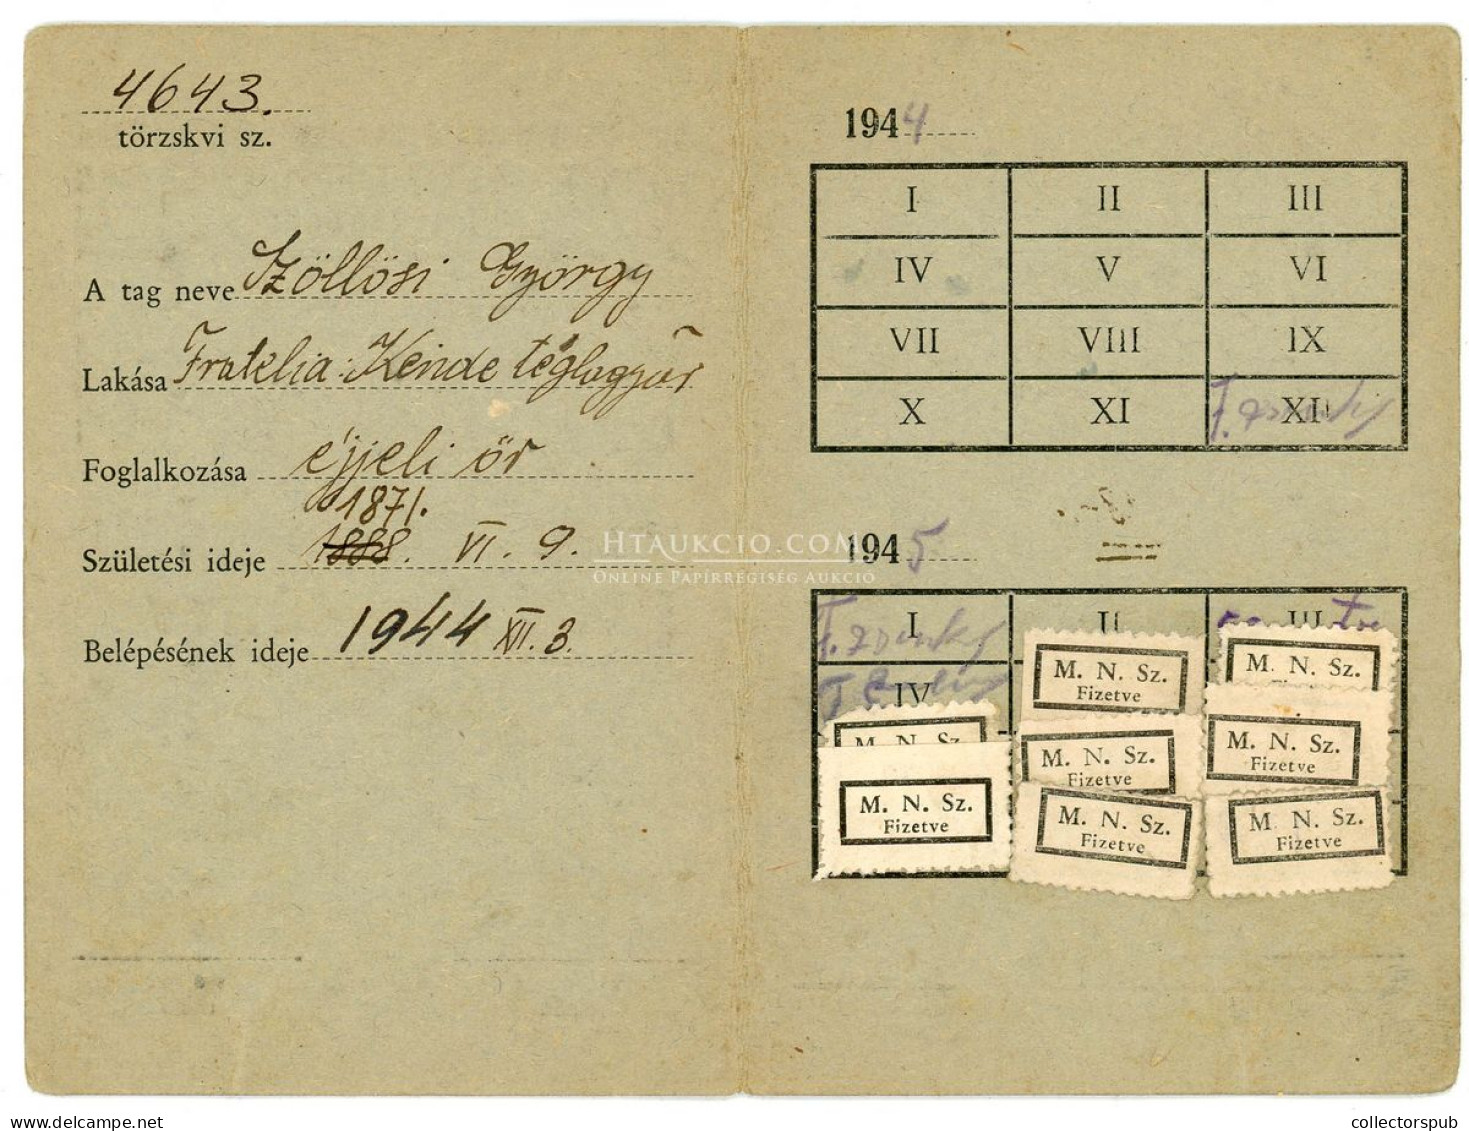 4643.
törzskvi sz.
A tag neve Szöllősi György
Lakása Fratelia. Kende téglagyár
Foglalkozása éjjeli őr
1871.
Születési ideje 1888. VI. 9.
Belépésének ideje 1944 XII. 3.
1944
I II III
IV V VI
VII VIII IX
X XI XII
1945
I II III
IV
M. N. Sz.
Fizetve
M. N. Sz.
Fizetve
M. N. Sz.
M. N. Sz.
Fizetve
M. N. Sz.
Fizetve
M. N. Sz.
Fizetve
M. N. Sz.
Fizetve
M. N. Sz.
Fizetve
HTAUKCIO.COM
ONLINE PAPÍRRÉGISÉG AUKCIÓ
www.delcampe.net
collectorspub